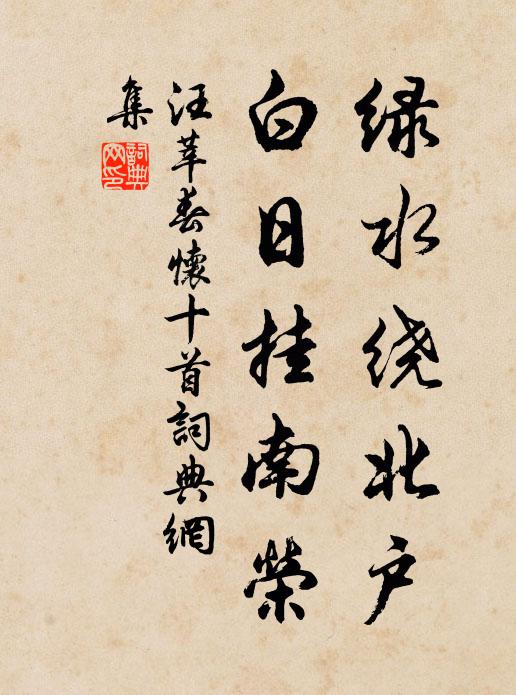 绿水绕北户
白日挂南榮
汪莘春懷十首詞典網
集
詞典
网印